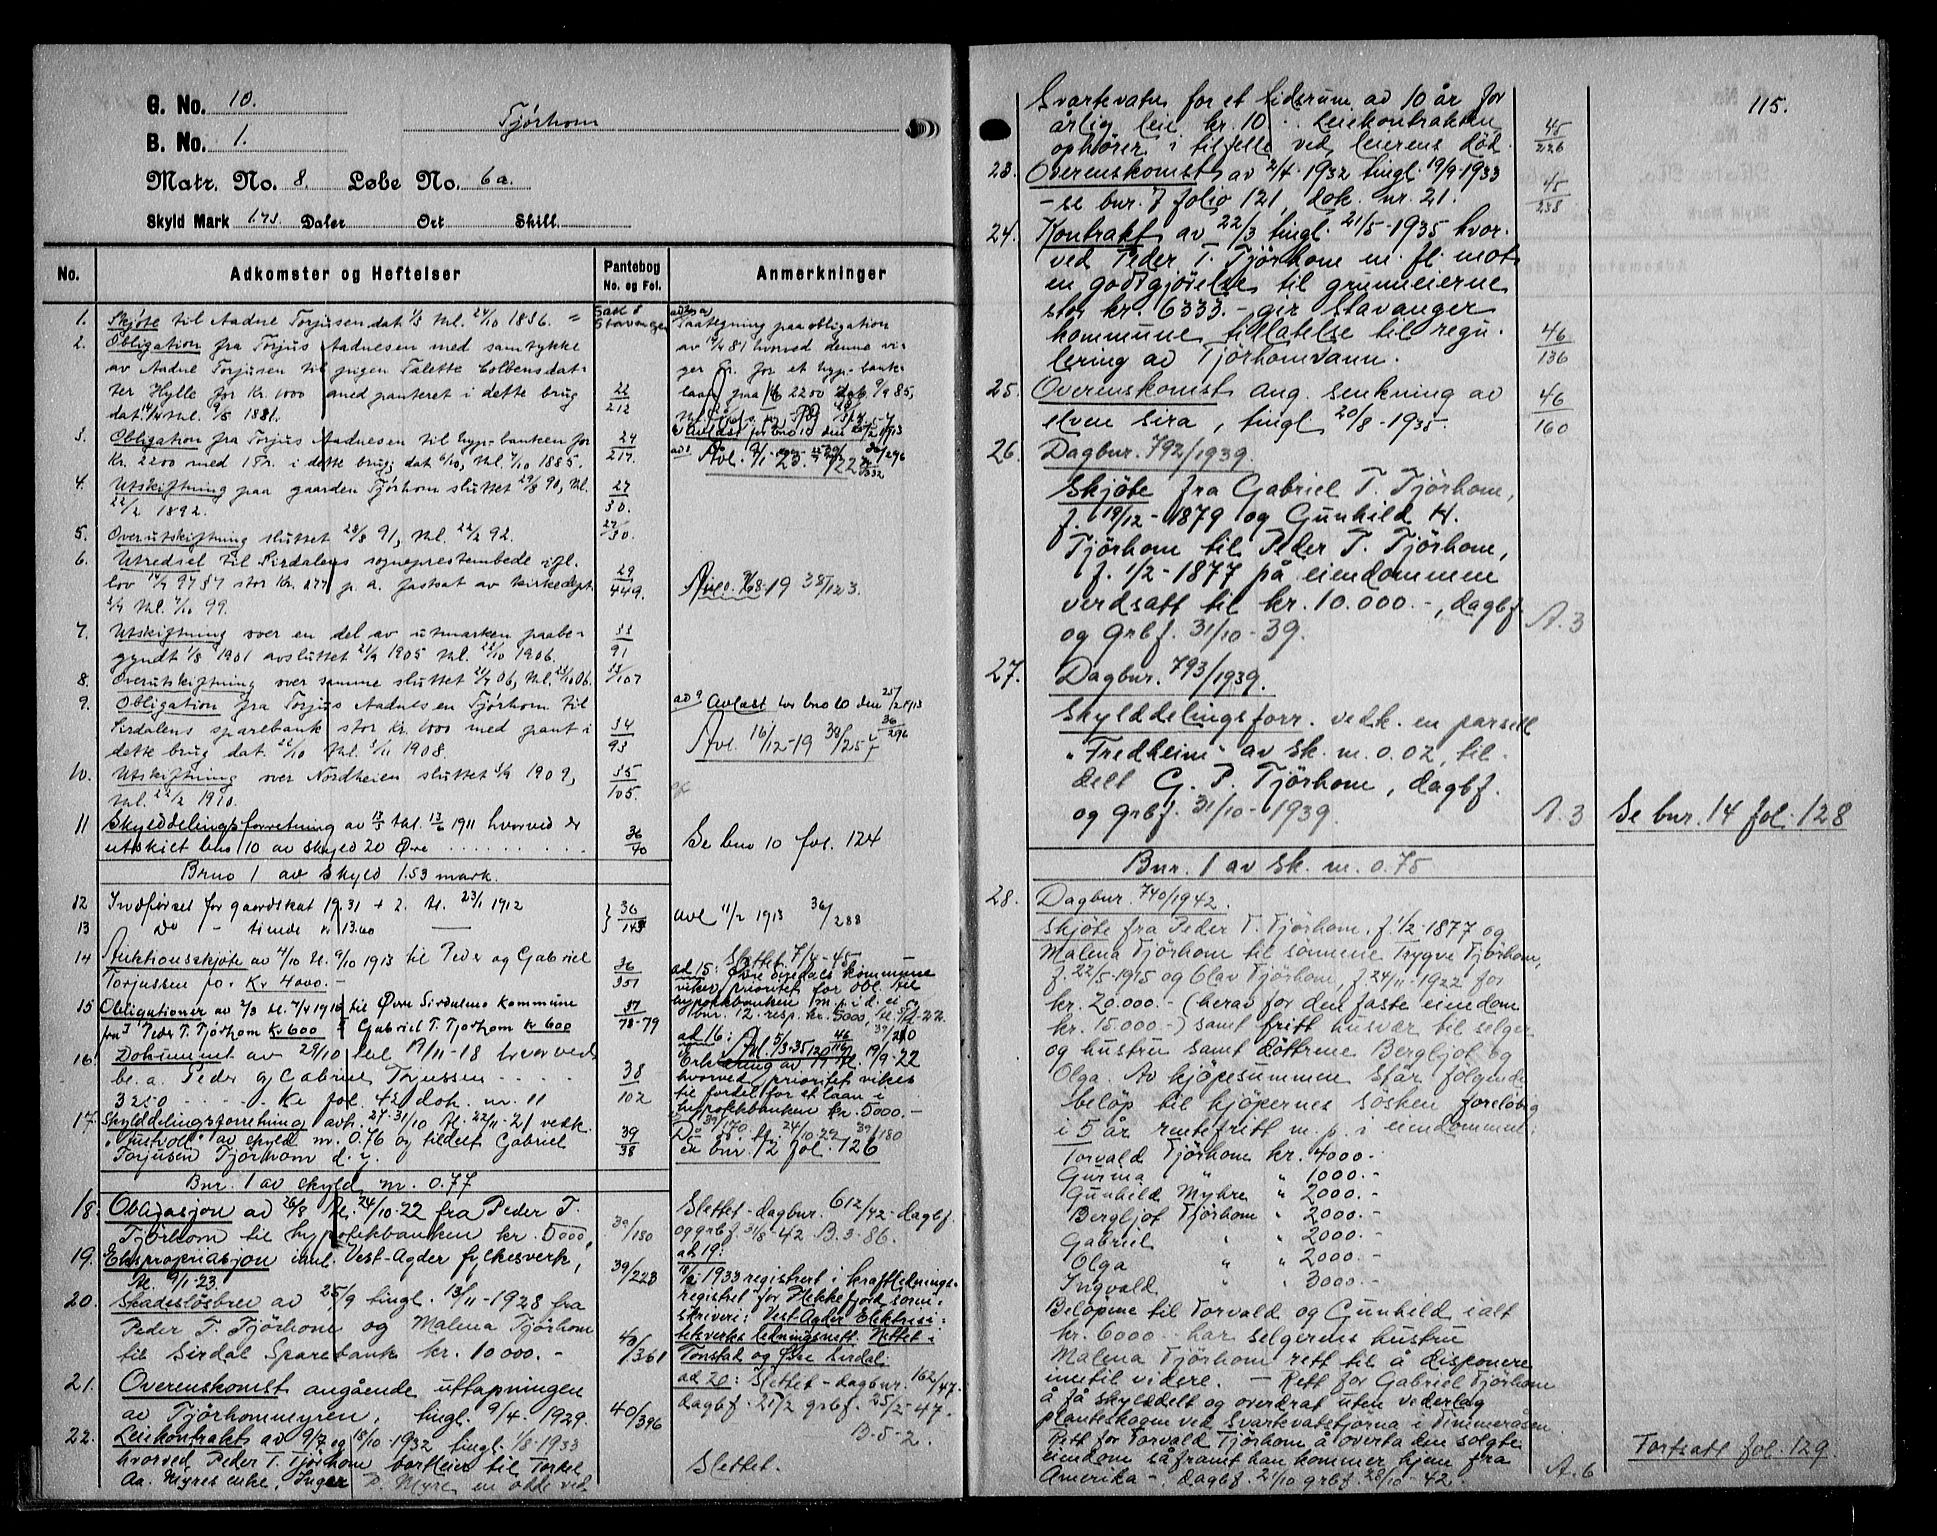 G. No. 10.
Tjørhom
B. No. 1.
Matr. No. 8. Løbe No. 6a.
Skyld Mark 1.73. Daler Ort Skill.
No. Adkomster og Heftelser Pantebog No. og Fol. Anmerkninger
1. Skjøte til Aadne Torjusen dat 1/3 thl. 24/10 1856.
2. Obligation fra Torjus Aadnesen med samtykke
av Aadne Torjusen til pigen Talette Tolleusdat-
ter Hylle for Kr. 1000 med panteret i dette brug
dat 14/4 thl. 9/5 1881. 22/212
3. Obligation fra Torjus Aadnesen til hyp.-banken for
Kr. 2200 med 1 Pr. i dette brug dat 6/10, thl. 7/10 1885. 24/217.
4. Utskiftning paa gaarden Tjørhom sluttet 29/8 90, thl.
22/2 1892. 27/30.
5. Overutskiftning sluttet 28/8 91, thl. 22/2 92. 27/30.
6. Utredsel til Sirdalens sogneprestembede ifl.
lov 14/7 97 § 7 stor Kr. 2.77 p. a. fastsat av kirkedept.
thl. 7/10 99. 29/449.
Avl. 9/8-19 38/123.
7. Utskiftning over en del av utmarken paabe-
gyndt 1/8 1901 avsluttet 21/9 1905 thl. 22/10 1906. 33/91
8. Overutskiftning over samme sluttet 21/7 06, thl. 22/10 06. 33/107
9. Obligation fra Torjus Aadnesen Tjørhom til
Sirdalens sparebank stor Kr. 1000 med pant i
dette brug dat. 22/10 thl. 2/11 1908. 34/93
ad 9 Avløst for bno 10 den 25/2 1913 36/296
Avl. 16/12-19 38/257
10. Utskiftning over Nordheien sluttet 3/9 1909,
thl. 22/2 1910. 35/105.
11 Skylddelingsforretning av 12/5 thl. 13/6 1911 hvorved er
utskilt bno 10 av skyld 20 Øre 36/40
Se bno 10 fol. 124
Bruno 1 av Skyld 1.53 mark.
12 Indførsel for gaardskat 19.31 + 2. tl. 23/1 1912
13 Do - tiende kr 13.60 36/143
avl 11/2 1913 36/288
14 Auktionsskjøte av 4/10 tl. 9/10 1913 til Peder og Gabriel
Torjussen for Kr 4000.- 36/351
15 Obligationer av 2/3 tl. 7/4 1915 til Øvre Sirdalens Kommune
fra Peder T. Tjørhom Kr 600 Gabriel T. Tjørhom Kr 600 37/78-79
Slettet 7/4-45
ad 15: Øvre Siredals kommune
viker prioritet for obl. til
hypotekbanken m. p. i d. ei.
bnr. 12 resp. kr. 5000,
16. Dokument av 29/10 tgl 19/11-18 hvorved
bl. a. Peder og Gabriel Torjussen
3250 Kr fol. 42 dok. nr. 11 38/102
ad 16: Avl. 5/3-35
Erklæring av tl. 19/9-22
hvorved prioritet vikes
til fordel for et laan i
hypotekbanken kr. 5000.-
17. Skylddelingsforretning avh. 27-31/10 tl. 22/11-21 vedk.
"Austvoll" av skyld m. 0.76 og tildelt Gabriel
Torjusen Tjørhom d. y. 39/38
Se bnr. 12 fol. 126
Bnr. 1 av skyld m. 0.77
18. Obligasjon av 26/8 tl. 24/10-22 fra Peder T.
Tjørhom til hypotekbanken kr. 5000, 39/180
Slettet - dagbnr. 612/42 - dagbf.
og grbf. 31/8-42 B.3-86.
19. Ekspropriasjon innl. Vest-Agder fylkesverk,
tl. 9/1-23. 39/223
ad 19:
1933 registrert i kraftlednings-
registret for Flekkefjord soren-
skriveri: Vest-Agder Elektrisi-
tetsverks ledningsnett. Nettet i
Tonstad og Øvre Sirdal
20. Skadesløsbrev av 25/9 tingl. 13/11-1928 fra
Peder T. Tjørhom og Malena Tjørhom
til Sirdal Sparebank kr. 10000.- 40/361
ad 20: Slettet - dagbnr. 162/47.
dagbf. 21/2 grbf. 25/2-47.
B-5-2.
21. Overenskomst angående uttapningen
av Tjørhommyren, tingl. 9/4. 1929. 40/396
22. Leiekontrakt av 9/7 og 18/10-1932 tingl. 1/8-1933
hvorved Peder T. Tjørhom bortleier til Torkel
Aa. Myres enke, Inger P. Myre en odde ved
Slettet.
115.
Svartevatn for et tidsrum av 10 år for
årlig leie kr. 10.-. Leiekontrakten
ophører i tilfelle ved leierens død. 45/226
23. Overenskomst av 2/4-1932 tingl. 19/9-1933
- se bnr. 7 folio 121, dok. nr. 21. 45/238
24. Kontrakt av 22/3 tingl. 21/5-1935 hvor-
ved Peder T. Tjörhom m. fl. mot
en godtgjörelse til grunneierne
stor kr. 6333.- gir Stavanger
kommune tillatelse til regu-
lering av Tjörhomvann. 46/136
25. Overenskomst ang. senkning av
elven Sira, tingl. 20/8-1935. 46/160
26. Dagbnr. 792/1939.
Skjöte fra Gabriel T. Tjörhom,
f. 19/12-1879 og Gunhild H.
Tjörhom til Peder T. Tjörhom,
f. 1/2-1877 på eiendommen
verdsatt til kr. 10.000.-, dagbf.
og grbf. 31/10-39. A.3
27. Dagbnr. 793/1939.
Skylddelingsforr. vedk. en parsell
"Fredheim" av sk. m. 0.02, til-
delt G. P. Tjörhom, dagbf.
og grbf. 31/10-1939. A.3
Se bnr. 14 fol. 128
Bnr. 1 av sk. m. 0.75
28. Dagbnr. 740/1942.
Skjöte fra Peder T. Tjörhom, f. 1/2-1877 og
Malena Tjörhom til sönnene Trygve Tjörhom,
f. 22/5-1915 og Olav Tjörhom, f. 24/11-1922 for
kr. 20.000.- (herav for den faste eiendom
kr. 15.000.-) samt fritt husvær til selger
og hustru samt döttrene Bergljot og
Olga. Av kjöpesummen står fölgende
belöp til kjöpernes sösken foreløbig
i 5 år rentefritt m. p. i eiendommen:
Torvald Tjörhom kr. 4000.-
Gurina " " 1000.-
Gunhild Myhre " 2000.-
Bergljot Tjörhom " 2000.-
Gabriel " " 2000.-
Olga " " 2000.-
Ingvald " " 3000.-
Belöpene til Torvald og Gunhild ialt
kr. 6000.- har selgerens hustru
Malena Tjörhom rett til å disponere
inntil videre. - Rett for Gabriel Tjörhom
å få skylddelt og overdrat uten vederlag
planteskogen ved Svartevatstjörna i Timmeråsen.
Rett for Torvald Tjörhom å overta den solgte
eiendom såframt han kommer hjem fra
Amerika -. Dagbf. 21/10 grbf. 28/10-42. A.6
Fortsatt fol. 129